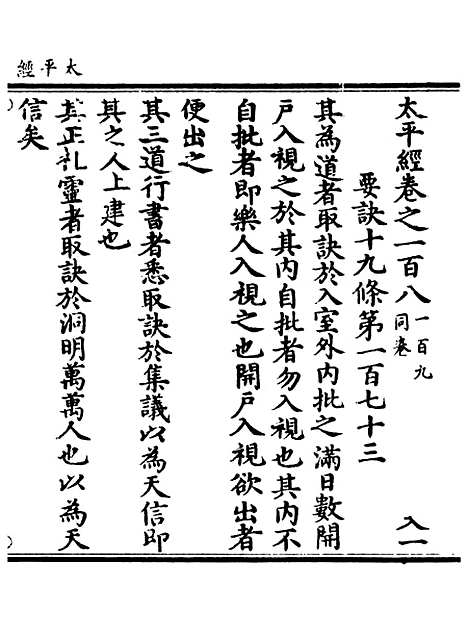 太平經
太平經卷之一百八 一百九同卷 入一
要訣十九條第一百七十三
其為道者取訣於入室外內批之滿日數開
戶入視之於其內自批者勿入視也其內不
自批者即樂人入視之也開戶入視欲出者
便出之
其三道行書者悉取訣於集議以為天信即
其之人上建也
其正礼靈者取訣於洞明萬萬人也以為天
信矣